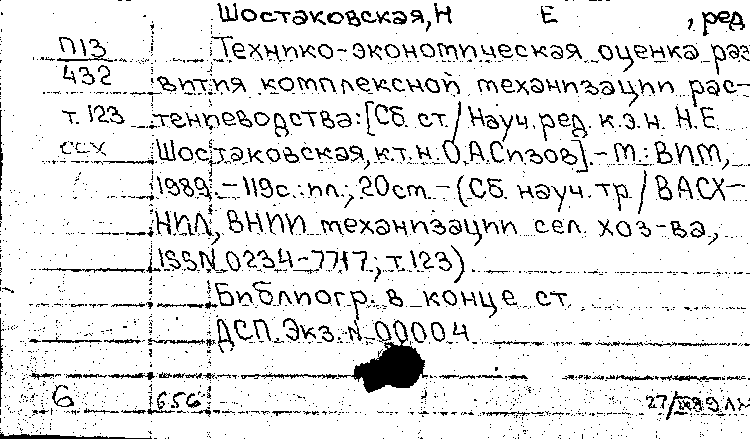 Шостаковская, Н Е , ред
П13 Технико-экономическая оценка раз
432 вития комплексной механизации рас-
т. 123 тениеводства: [Сб. ст./Науч. ред. к.э.н. Н.Е
ссх Шостаковская, к.т.н. О.А.Сизов]. - М.: ВИМ,
1989. - 119с.: ил.; 20см. - (Сб. науч. тр./ВАСХ-
НИЛ, ВНИИ механизации сел. хоз-ва,
ISSN 0234-7717; т. 123)
Библиогр. в конце ст.
ДСП. Экз. N 00004
6 656